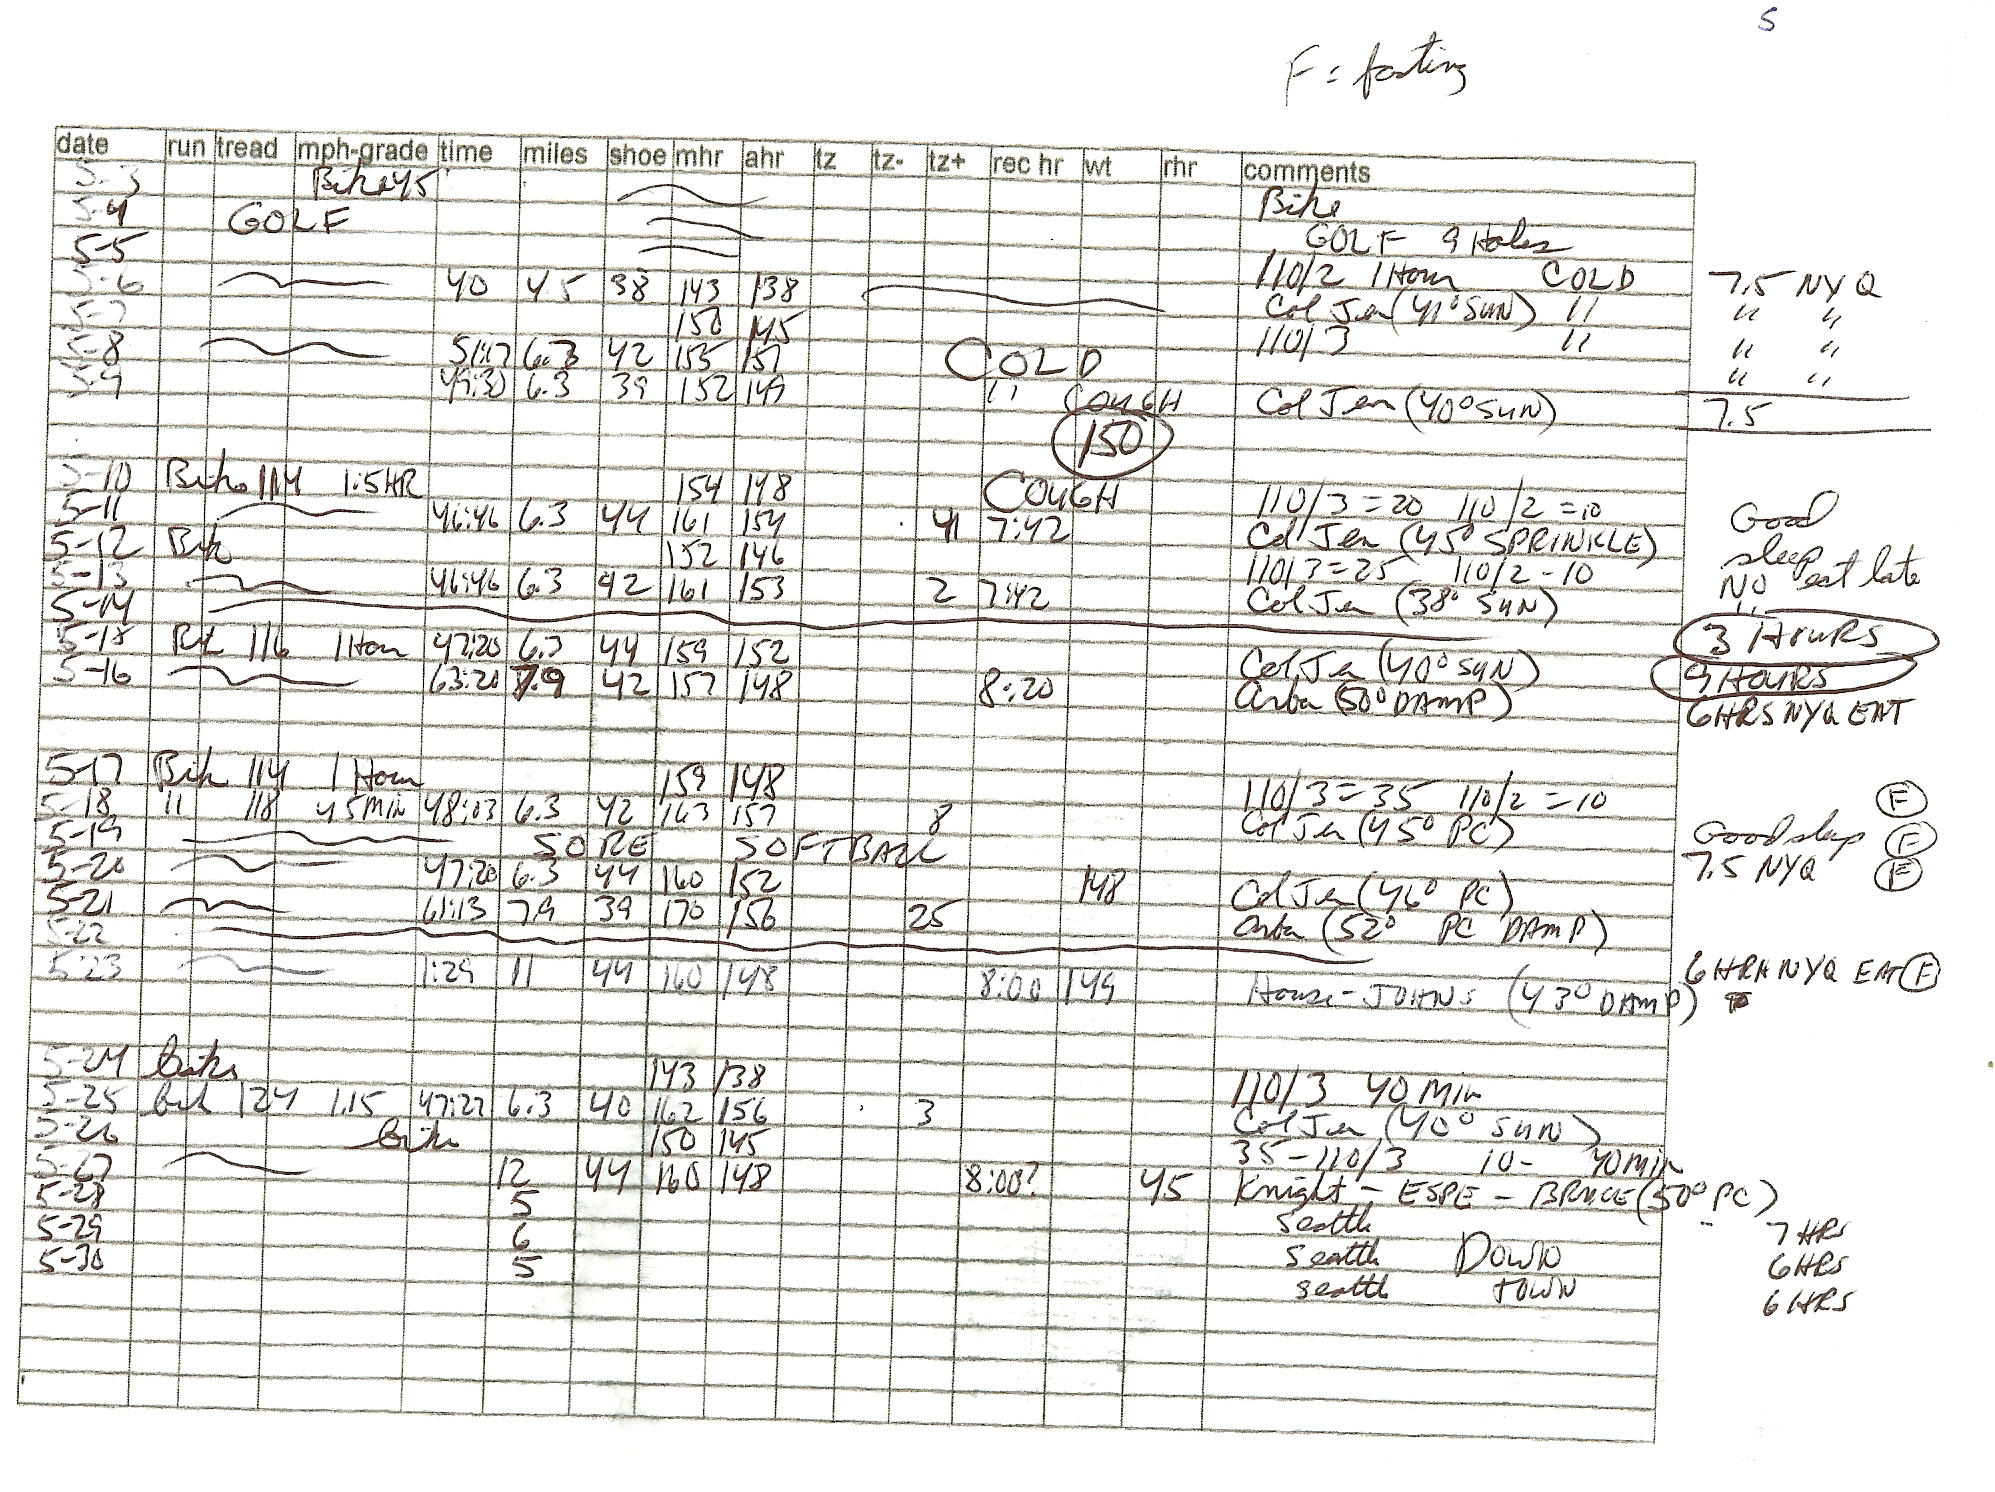 5
F = fasting
date run tread mph-grade time miles shoe mhr ahr tz tz- tz+ rec hr wt rhr comments
5-3 Bike 45 Bike
5-4 GOLF GOLF 9 Holes
5-5 110/2 1 Hour COLD 7.5 NYQ
5-6 40 4.5 38 143 138 Col Jen (41° SUN) " " "
5-7 150 145 110/3 " " "
5-8 51:17 6.3 42 155 151 COLD " "
5-9 49:30 6.3 39 152 149 " COUGH Col Jen (40° SUN) 7.5
150
5-10 Bike 114 1:5HR 154 148 COUGH 110/3 = 20 110/2 = 10 Good
5-11 46:46 6.3 44 161 154 41 7:42 Col Jen (45° SPRINKLE) sleep
5-12 Bik 152 146 110/3 = 25 110/2 - 10 NO eat late
5-13 46:46 6.3 42 161 153 2 7:42 Col Jen (38° SUN) "
5-14 3 HOURS
5-15 Bik 116 1 Hour 47:20 6.3 44 159 152 Col Jen (40° SUN) 9 HOURS
5-16 63:20 7.9 42 157 148 8:20 Arba (50° DAMP) 6 HRS NYQ EAT
5-17 Bik 114 1 Hour 159 148 110/3 = 35 110/2 = 10 F
5-18 11 118 45 MIN 48:03 6.3 42 163 157 8 Col Jen (45° PC) Good sleep F
5-19 SORE SOFTBALL 7.5 NYQ F
5-20 47:20 6.3 44 160 152 148 Col Jen (46° PC)
5-21 61:13 7.9 39 170 156 25 Arba (52° PC DAMP)
5-22 6 HRH NYQ EAT F
5-23 1:29 11 44 160 148 8:00 149 House - JOHNS (43° DAMP)
5-24 bike 143 138 110/3 40 Min
5-25 bik 124 1.15 47:27 6.3 40 162 156 3 Col Jen (40° SUN)
5-26 bike 150 145 35 - 110/3 10 - 40 MIN
5-27 12 44 160 148 8:00? 45 Knight - ESPE - BRUCE (50° PC)
5-28 5 seattle 7 HRS
5-29 6 seattle DOWN 6 HRS
5-30 5 seattle TOWN 6 HRS